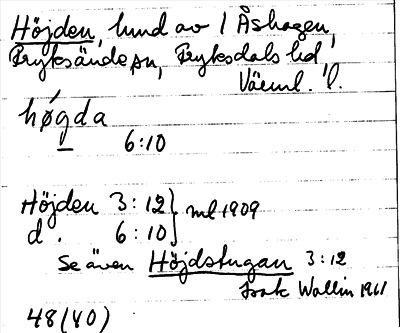 Höjden, hmd av 1 Åshagen,
Fryksände sn, Fryksdals hd,
Värml. l.
hǿgda
6:10
Höjden 3:12 } ml 1909
d. 6:10
Se även Höjdstugan 3:12
Isak Wallin 1961
48 (40)